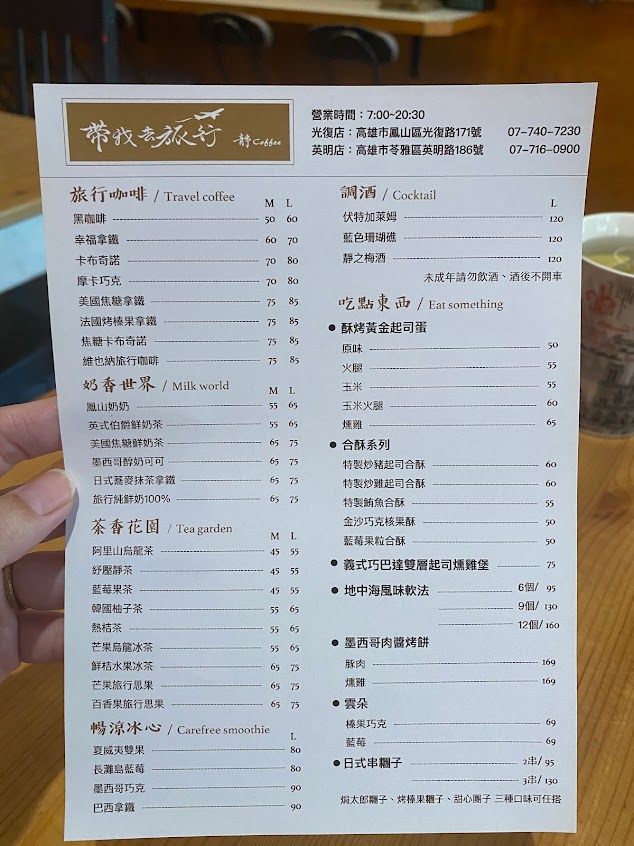 帶我去旅行 靜Coffee
營業時間：7:00~20:30
光復店：高雄市鳳山區光復路171號 07-740-7230
英明店：高雄市苓雅區英明路186號 07-716-0900
旅行咖啡 / Travel coffee M L
黑咖啡 50 60
幸福拿鐵 60 70
卡布奇諾 70 80
摩卡巧克 70 80
美國焦糖拿鐵 75 85
法國烤榛果拿鐵 75 85
焦糖卡布奇諾 75 85
維也納旅行咖啡 75 85
奶香世界 / Milk world M L
鳳山奶奶 55 65
英式伯爵鮮奶茶 55 65
美國焦糖鮮奶茶 65 75
墨西哥醇奶可可 65 75
日式蕎麥抹茶拿鐵 65 75
旅行純鮮奶100% 65 75
茶香花園 / Tea garden M L
阿里山烏龍茶 45 55
紓壓靜茶 45 55
藍莓果茶 45 55
韓國柚子茶 55 65
熱桔茶 55 65
芒果烏龍冰茶 55 65
鮮桔水果冰茶 65 75
芒果旅行思果 65 75
百香果旅行思果 65 75
暢涼冰心 / Carefree smoothie L
夏威夷雙果 80
長灘島藍莓 80
墨西哥巧克 90
巴西拿鐵 90
調酒 / Cocktail L
伏特加萊姆 120
藍色珊瑚礁 120
靜之梅酒 120
未成年請勿飲酒、酒後不開車
吃點東西 / Eat something
●酥烤黃金起司蛋
原味 50
火腿 55
玉米 55
玉米火腿 60
燻雞 65
●合酥系列
特製炒豬起司合酥 60
特製炒雞起司合酥 60
特製鮪魚合酥 55
金沙巧克核果酥 50
藍莓果粒合酥 50
●義式巧巴達雙層起司燻雞堡 75
●地中海風味軟法 6個/ 95
9個/ 130
12個/ 160
●墨西哥肉醬烤餅
豚肉 169
燻雞 169
●雲朵
榛果巧克 69
藍莓 69
●日式串糰子 2串/ 95
3串/ 130
焗太郎糰子、烤榛果糰子、甜心團子 三種口味可任搭